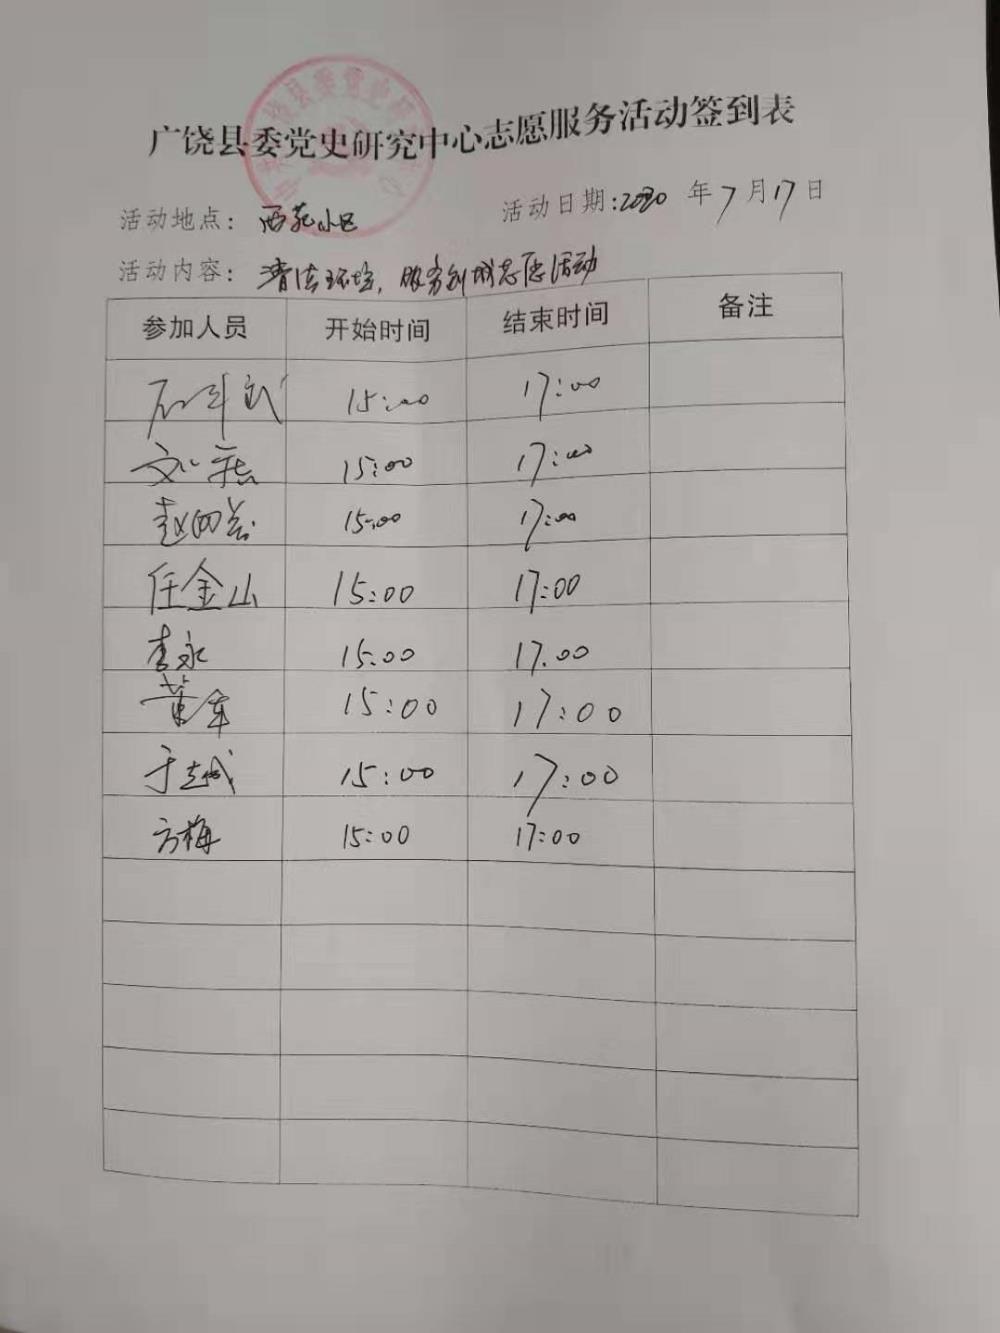 广饶县委党史研究中心志愿服务活动签到表
活动地点：西苑小区 活动日期：2020 年 7 月 17 日
活动内容：清洁环境，服务创城志愿活动
参加人员 开始时间 结束时间 备注
15:00 17:00
15:00 17:00
15:00 17:00
任金山 15:00 17:00
李永 15:00 17.00
董军 15:00 17:00
于越 15:00 17:00
方梅 15:00 17:00